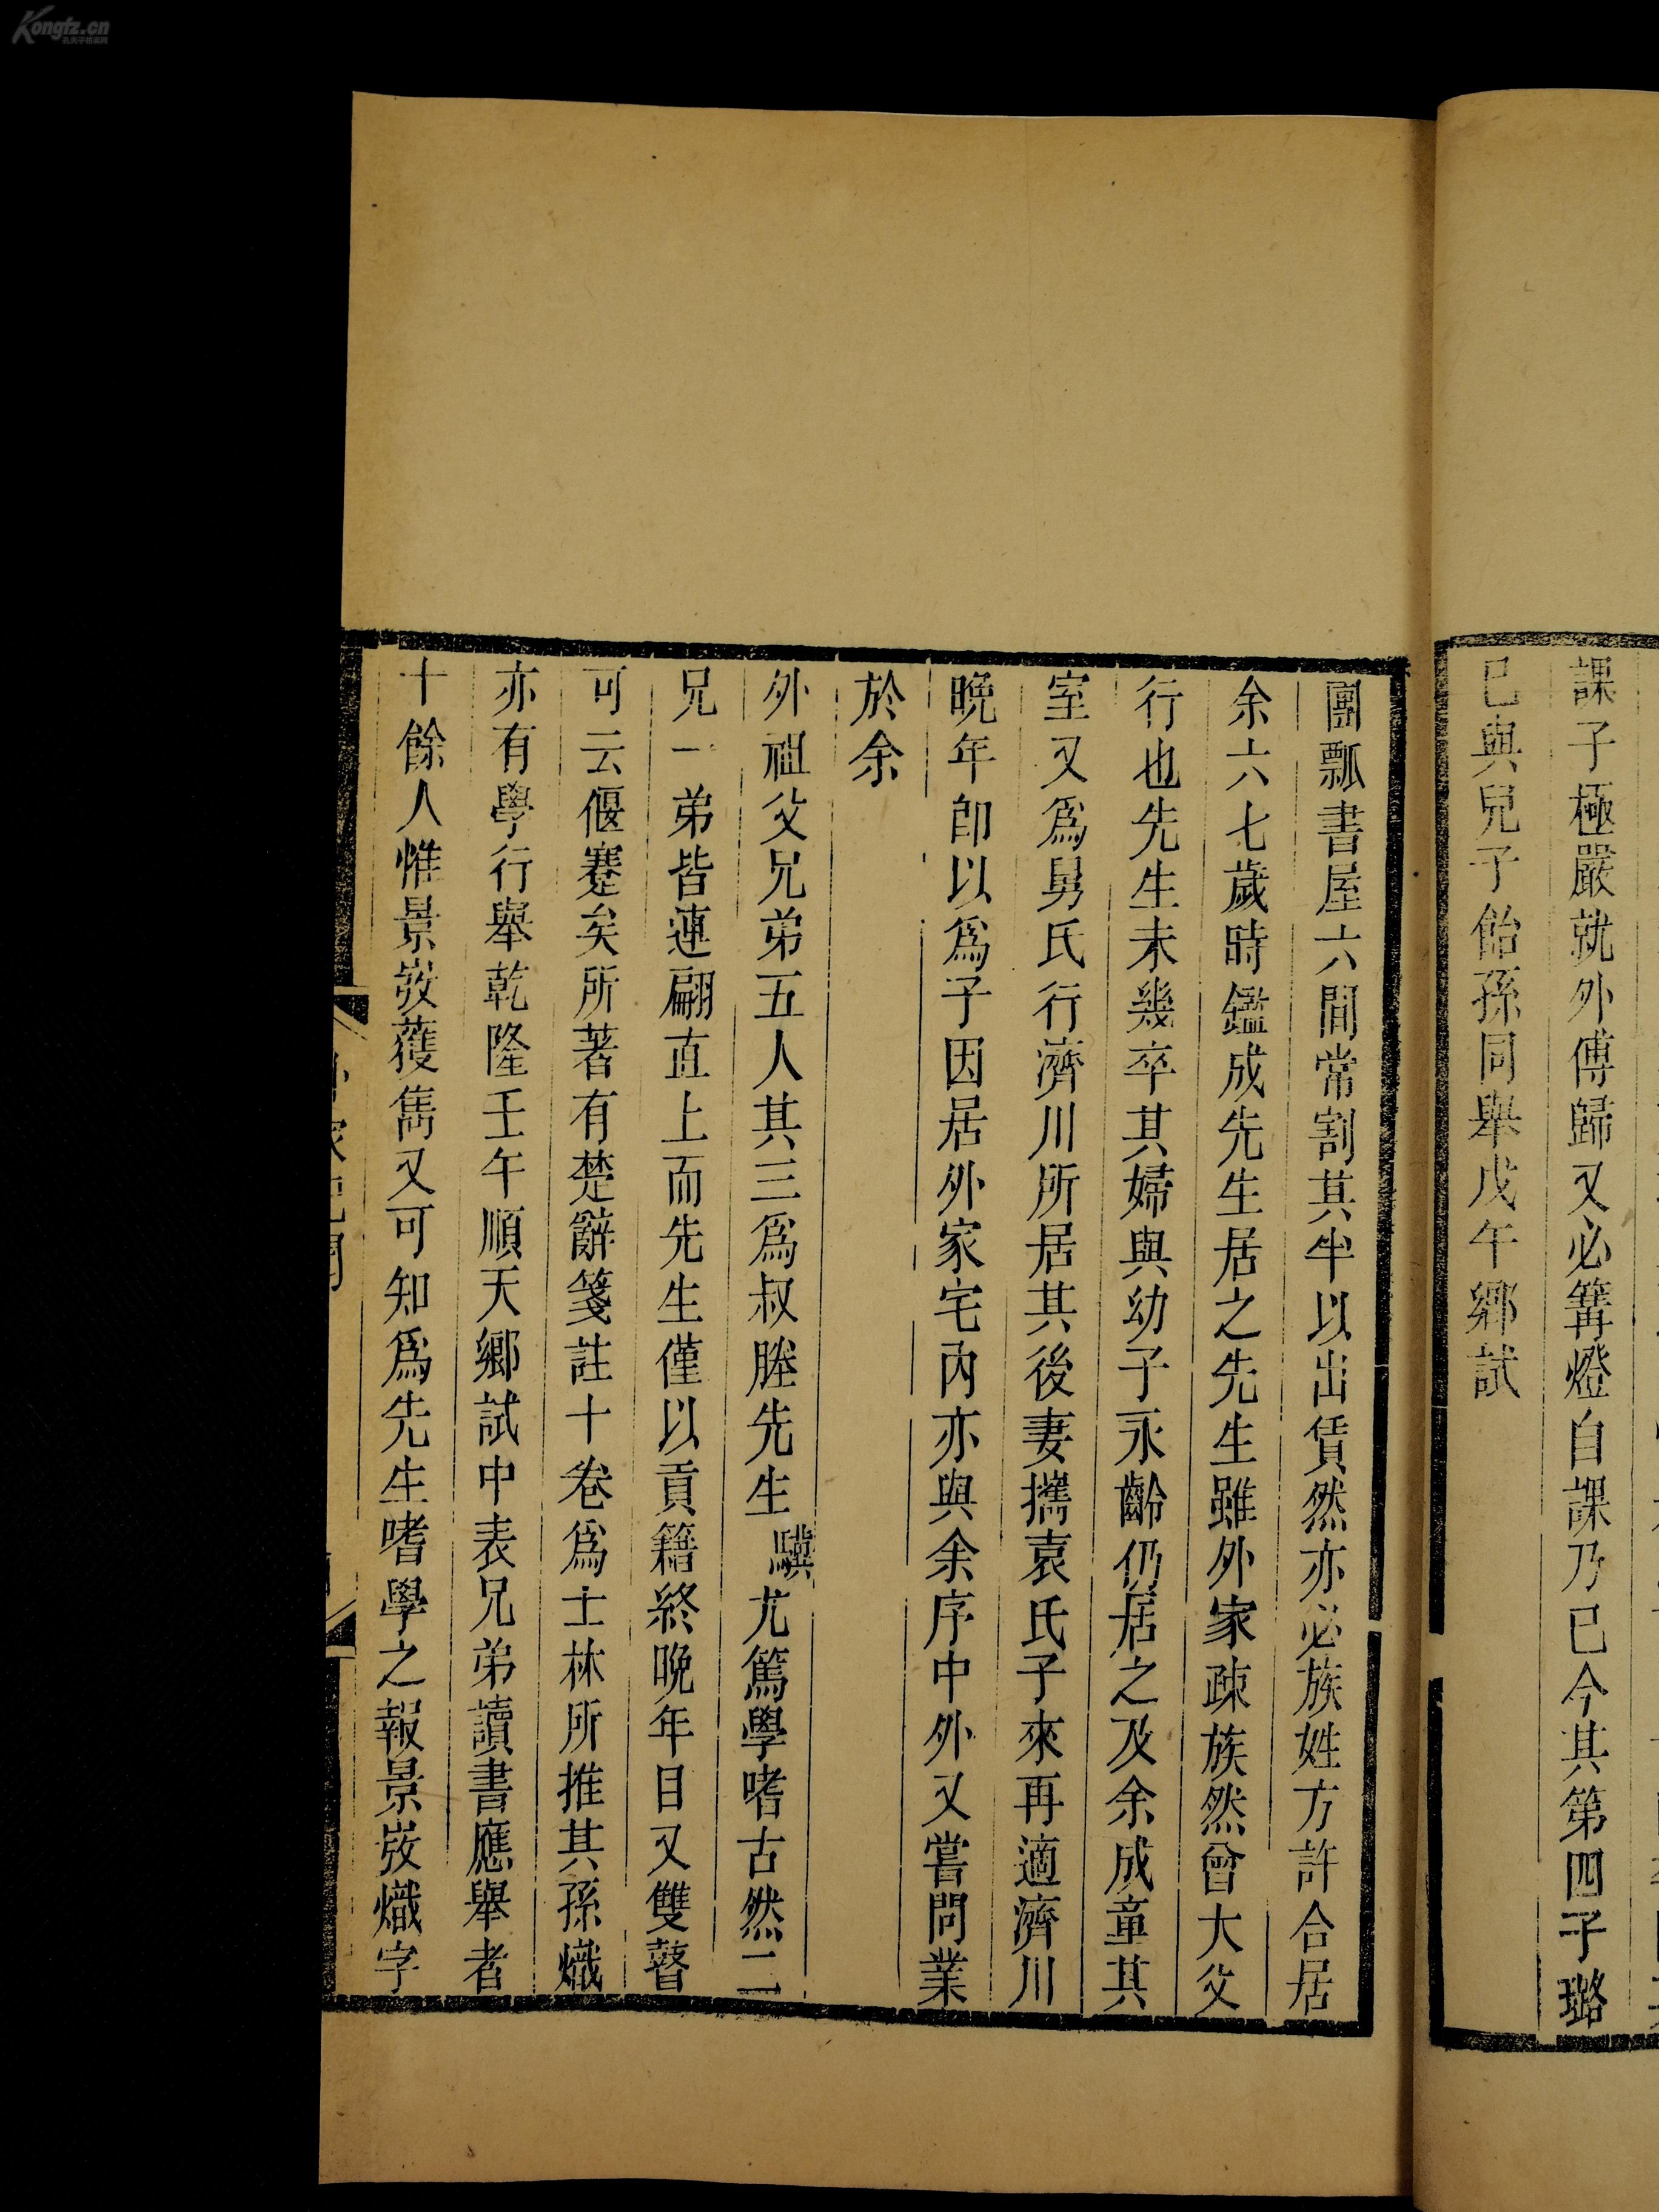 Kongfz.cn
課子極嚴就外傅歸又必篝燈自課乃已今其第四子璐
已與兒子飴孫同舉戊午鄉試
團瓢書屋六間常割其半以出賃然亦必族姓方許合居
余六七歲時鑑成先生居之先生雖外家疎族然曾大父
行也先生未幾卒其婦與幼子永齡仍居之及余成童其
室又爲舅氏行濟川所居其後妻攜袁氏子來再適濟川
晚年卽以爲子因居外家宅內亦與余序中外又嘗問業
於余
外祖父兄弟五人其三爲叔塍先生驥尤篤學嗜古然二
兄一弟皆連翩直上而先生僅以貢籍終晚年目又雙瞽
可云偃蹇矣所著有楚辭箋註十卷爲士林所推其孫熾
亦有學行舉乾隆壬午順天鄉試中表兄弟讀書應舉者
十餘人惟景㪣獲雋又可知爲先生嗜學之報景㪣熾字